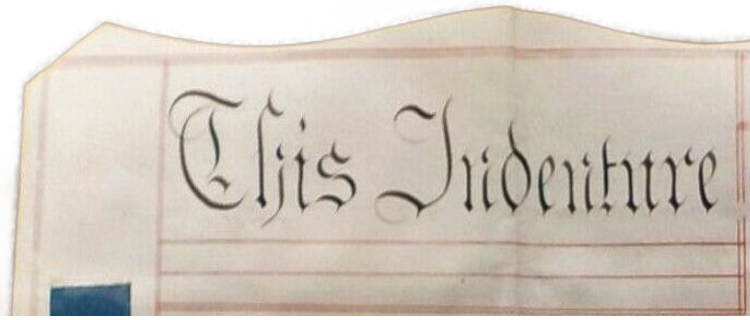 This Indenture